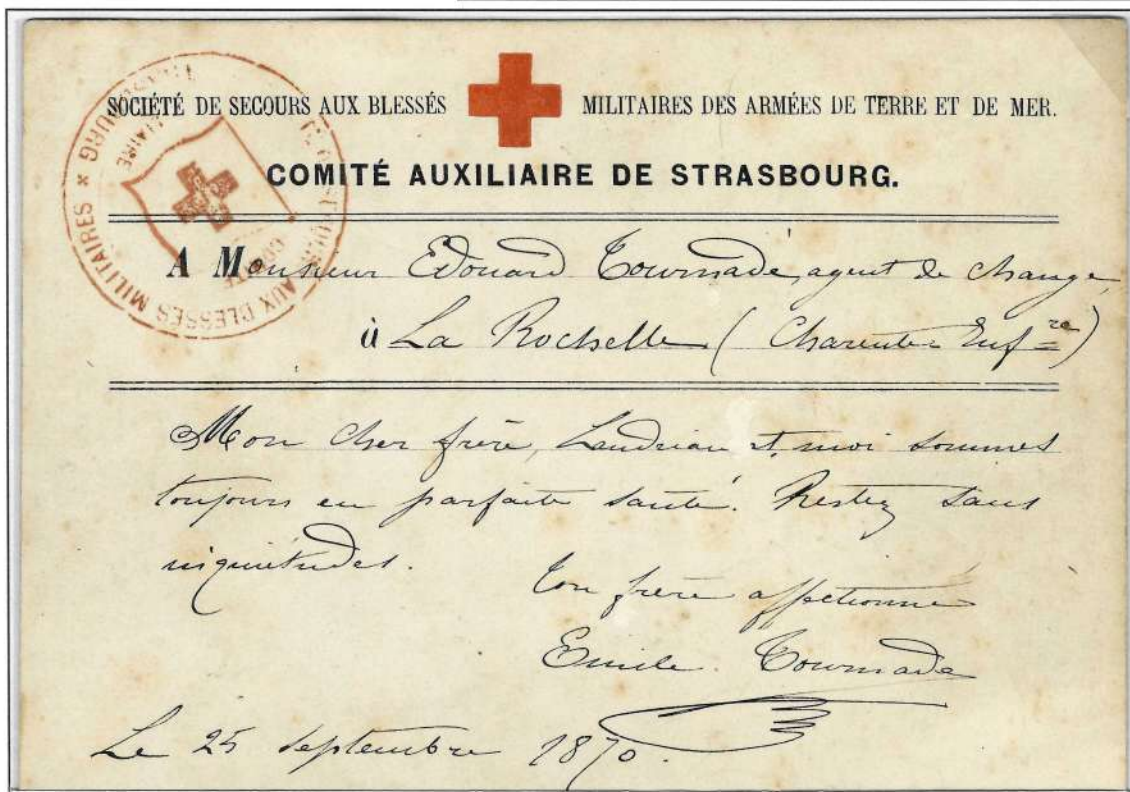 SOCIÉTÉ DE SECOURS AUX BLESSÉS MILITAIRES DES ARMÉES DE TERRE ET DE MER.
COMITÉ AUXILIAIRE DE STRASBOURG.
SECOURS AUX BLESSÉS MILITAIRES *
COMITÉ
A Monsieur Edouard Tournade, agent de change,
à La Rochelle (Charente Infre)
Mon cher frère, Landrian et moi sommes
toujours en parfaite santé. Restez sans
inquiétudes.
Ton frère affectionné
Emile Tournade
Le 25 septembre 1870.